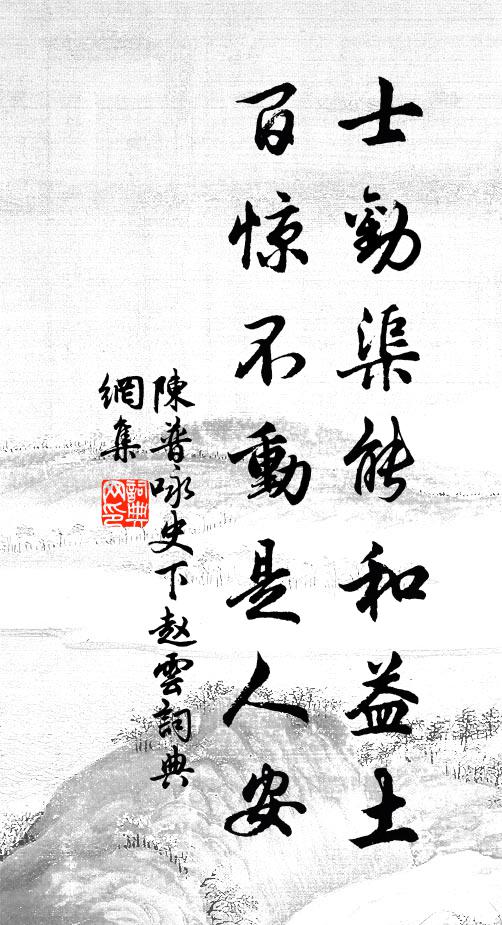 士勸渠能和益土
百惊不動是人安
陳普咏史下赵雲詞典
網集
詞典網印